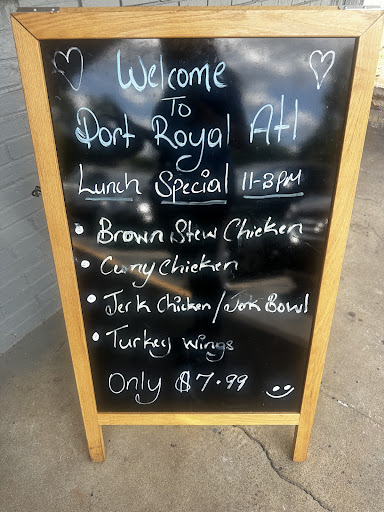 Welcome
To
Port Royal Atl
Lunch Special 11-3PM
• Brown Stew Chicken
• Curry Chicken
• Jerk Chicken / Jerk Bowl
• Turkey Wings
Only $7.99